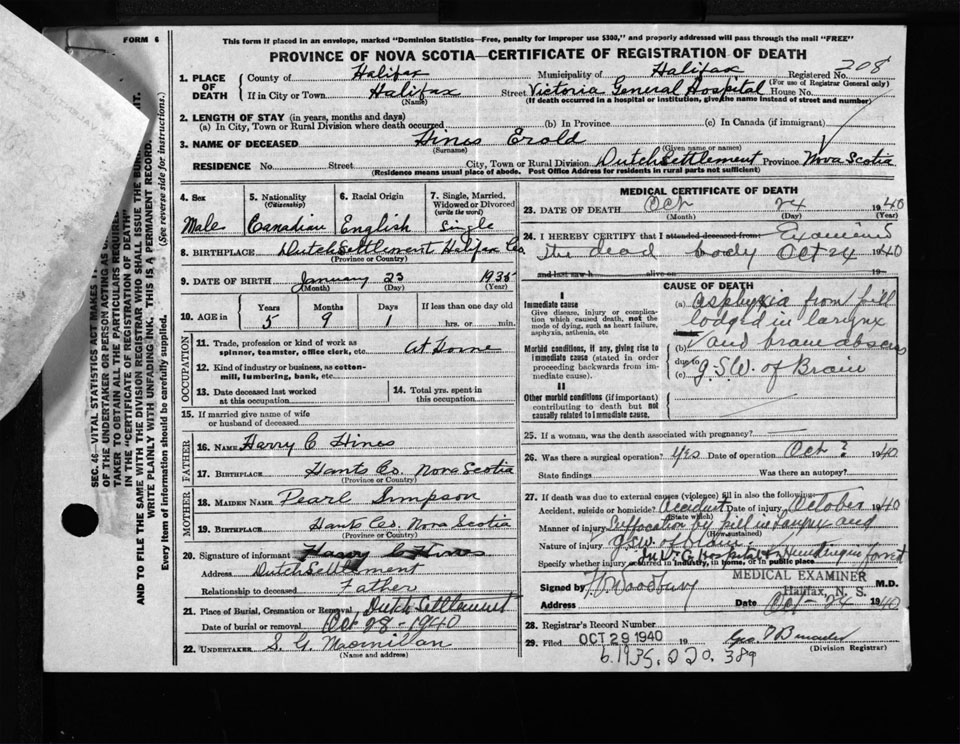 FORM 6
This form if placed in an envelope, marked "Dominion Statistics—Free, penalty for improper use $300," and properly addressed will pass through the mail "FREE"
PROVINCE OF NOVA SCOTIA—CERTIFICATE OF REGISTRATION OF DEATH
308
1. PLACE OF DEATH County of Halifax Municipality of Halifax Registered No.
(For use of Registrar General only)
If in City or Town Halifax Street Victoria General Hospital House No.
(Name) (If death occurred in a hospital or institution, give the name instead of street and number)
2. LENGTH OF STAY (in years, months and days)
(a) In City, Town or Rural Division where death occurred (b) In Province (c) In Canada (if immigrant)
3. NAME OF DECEASED Hines Erold
(Surname) (Given name or names)
RESIDENCE No. Street City, Town or Rural Division Dutch Settlement Province Nova Scotia
(Residence means usual place of abode. Post Office Address for residents in rural parts not sufficient)
4. Sex 5. Nationality (Citizenship) 6. Racial Origin 7. Single, Married, Widowed or Divorced (write the word)
Male Canadian English Single
8. BIRTHPLACE Dutch Settlement Halifax Co.
(Province or Country)
9. DATE OF BIRTH January 23 1935
(Month) (Day) (Year)
10. AGE in Years Months Days If less than one day old
5 9 1 hrs. or min.
OCCUPATION
11. Trade, profession or kind of work as spinner, teamster, office clerk, etc. At Home
12. Kind of industry or business, as cotton-mill, lumbering, bank, etc.
13. Date deceased last worked at this occupation 14. Total yrs. spent in this occupation
15. If married give name of wife or husband of deceased
FATHER
16. NAME Harry C Hines
17. BIRTHPLACE Hants Co. Nova Scotia
(Province or Country)
MOTHER
18. MAIDEN NAME Pearl Simpson
19. BIRTHPLACE Hants Co. Nova Scotia
(Province or Country)
20. Signature of informant Harry C Hines
Address Dutch Settlement
Relationship to deceased Father
21. Place of Burial, Cremation or Removal Dutch Settlement
Date of burial or removal Oct 28 - 1940
22. UNDERTAKER S. G. Macmillan
(Name and address)
MEDICAL CERTIFICATE OF DEATH
23. DATE OF DEATH Oct 24 1940
(Month) (Day) (Year)
24. I HEREBY CERTIFY that I attended deceased from Examined
the dead body Oct 24 1940
and last saw h alive on 19
CAUSE OF DEATH
I
Immediate cause
Give disease, injury or complication which caused death, not the mode of dying, such as heart failure, asphyxia, asthenia, etc.
(a) Asphyxia from pill
lodged in larynx
Morbid conditions, if any, giving rise to immediate cause (stated in order proceeding backwards from immediate cause).
(b) and brain abscess
due to
(c) G.S.W. of Brain
II
Other morbid conditions (if important) contributing to death but not causally related to immediate cause.
25. If a woman, was the death associated with pregnancy?
26. Was there a surgical operation? Yes Date of operation Oct ? 1940
State findings Was there an autopsy?
27. If death was due to external causes (violence) fill in also the following:
Accident, suicide or homicide? Accident Date of injury October 1940
(State which)
Manner of injury Suffocation by pill in larynx and
(How sustained)
Nature of injury G.S.W. of Brain
In V. G. Hospital & Hunting in forest
Specify whether injury occurred in industry, in home, or in public place
Signed by M.D.
MEDICAL EXAMINER
Halifax, N. S.
Address Date Oct - 24 1940
28. Registrar's Record Number
29. Filed OCT 29 1940 19
(Division Registrar)
b. 1935. 220. 389
SEC. 46—VITAL STATISTICS ACT MAKES
OF THE UNDERTAKER OR PERSON ACTING AS
TAKER TO OBTAIN ALL THE PARTICULARS REQUIRED
IN THE "CERTIFICATE OF REGISTRATION OF DEATH"
AND TO FILE THE SAME WITH THE DIVISION REGISTRAR WHO SHALL ISSUE THE BURIAL
WRITE PLAINLY WITH UNFADING INK. THIS IS A PERMANENT RECORD.
Every item of information should be carefully supplied. (See reverse side for instructions.)